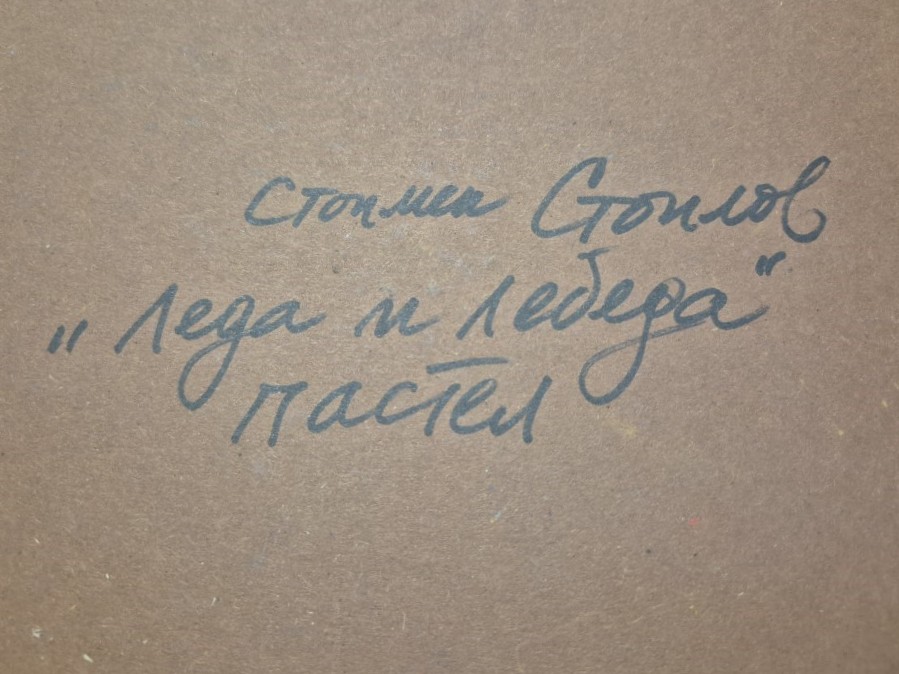 Стоимен Стоилов
„Леда и лебеда"
пастел